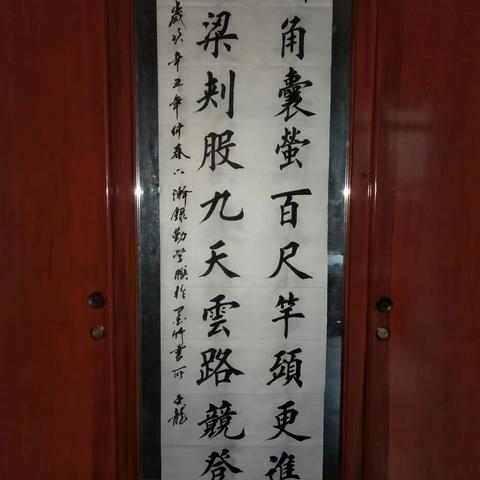 角囊萤百尺竿頭更進
梁刺股九天雲路競登
歲次辛丑年仲春八瀚録勤學聯於墨竹書